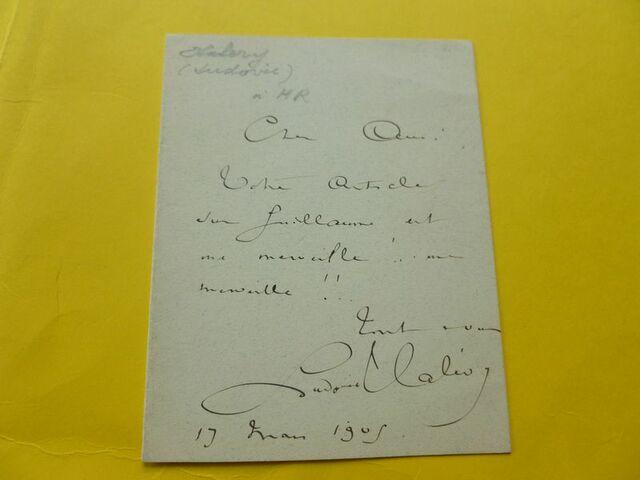 Halévy
(Ludovic)
à HR
Cher Ami!
Votre article
sur Guillaume est
une merveille!.. une
merveille!!..
Tout à vous
Ludovic Halévy
17 Mars 1905